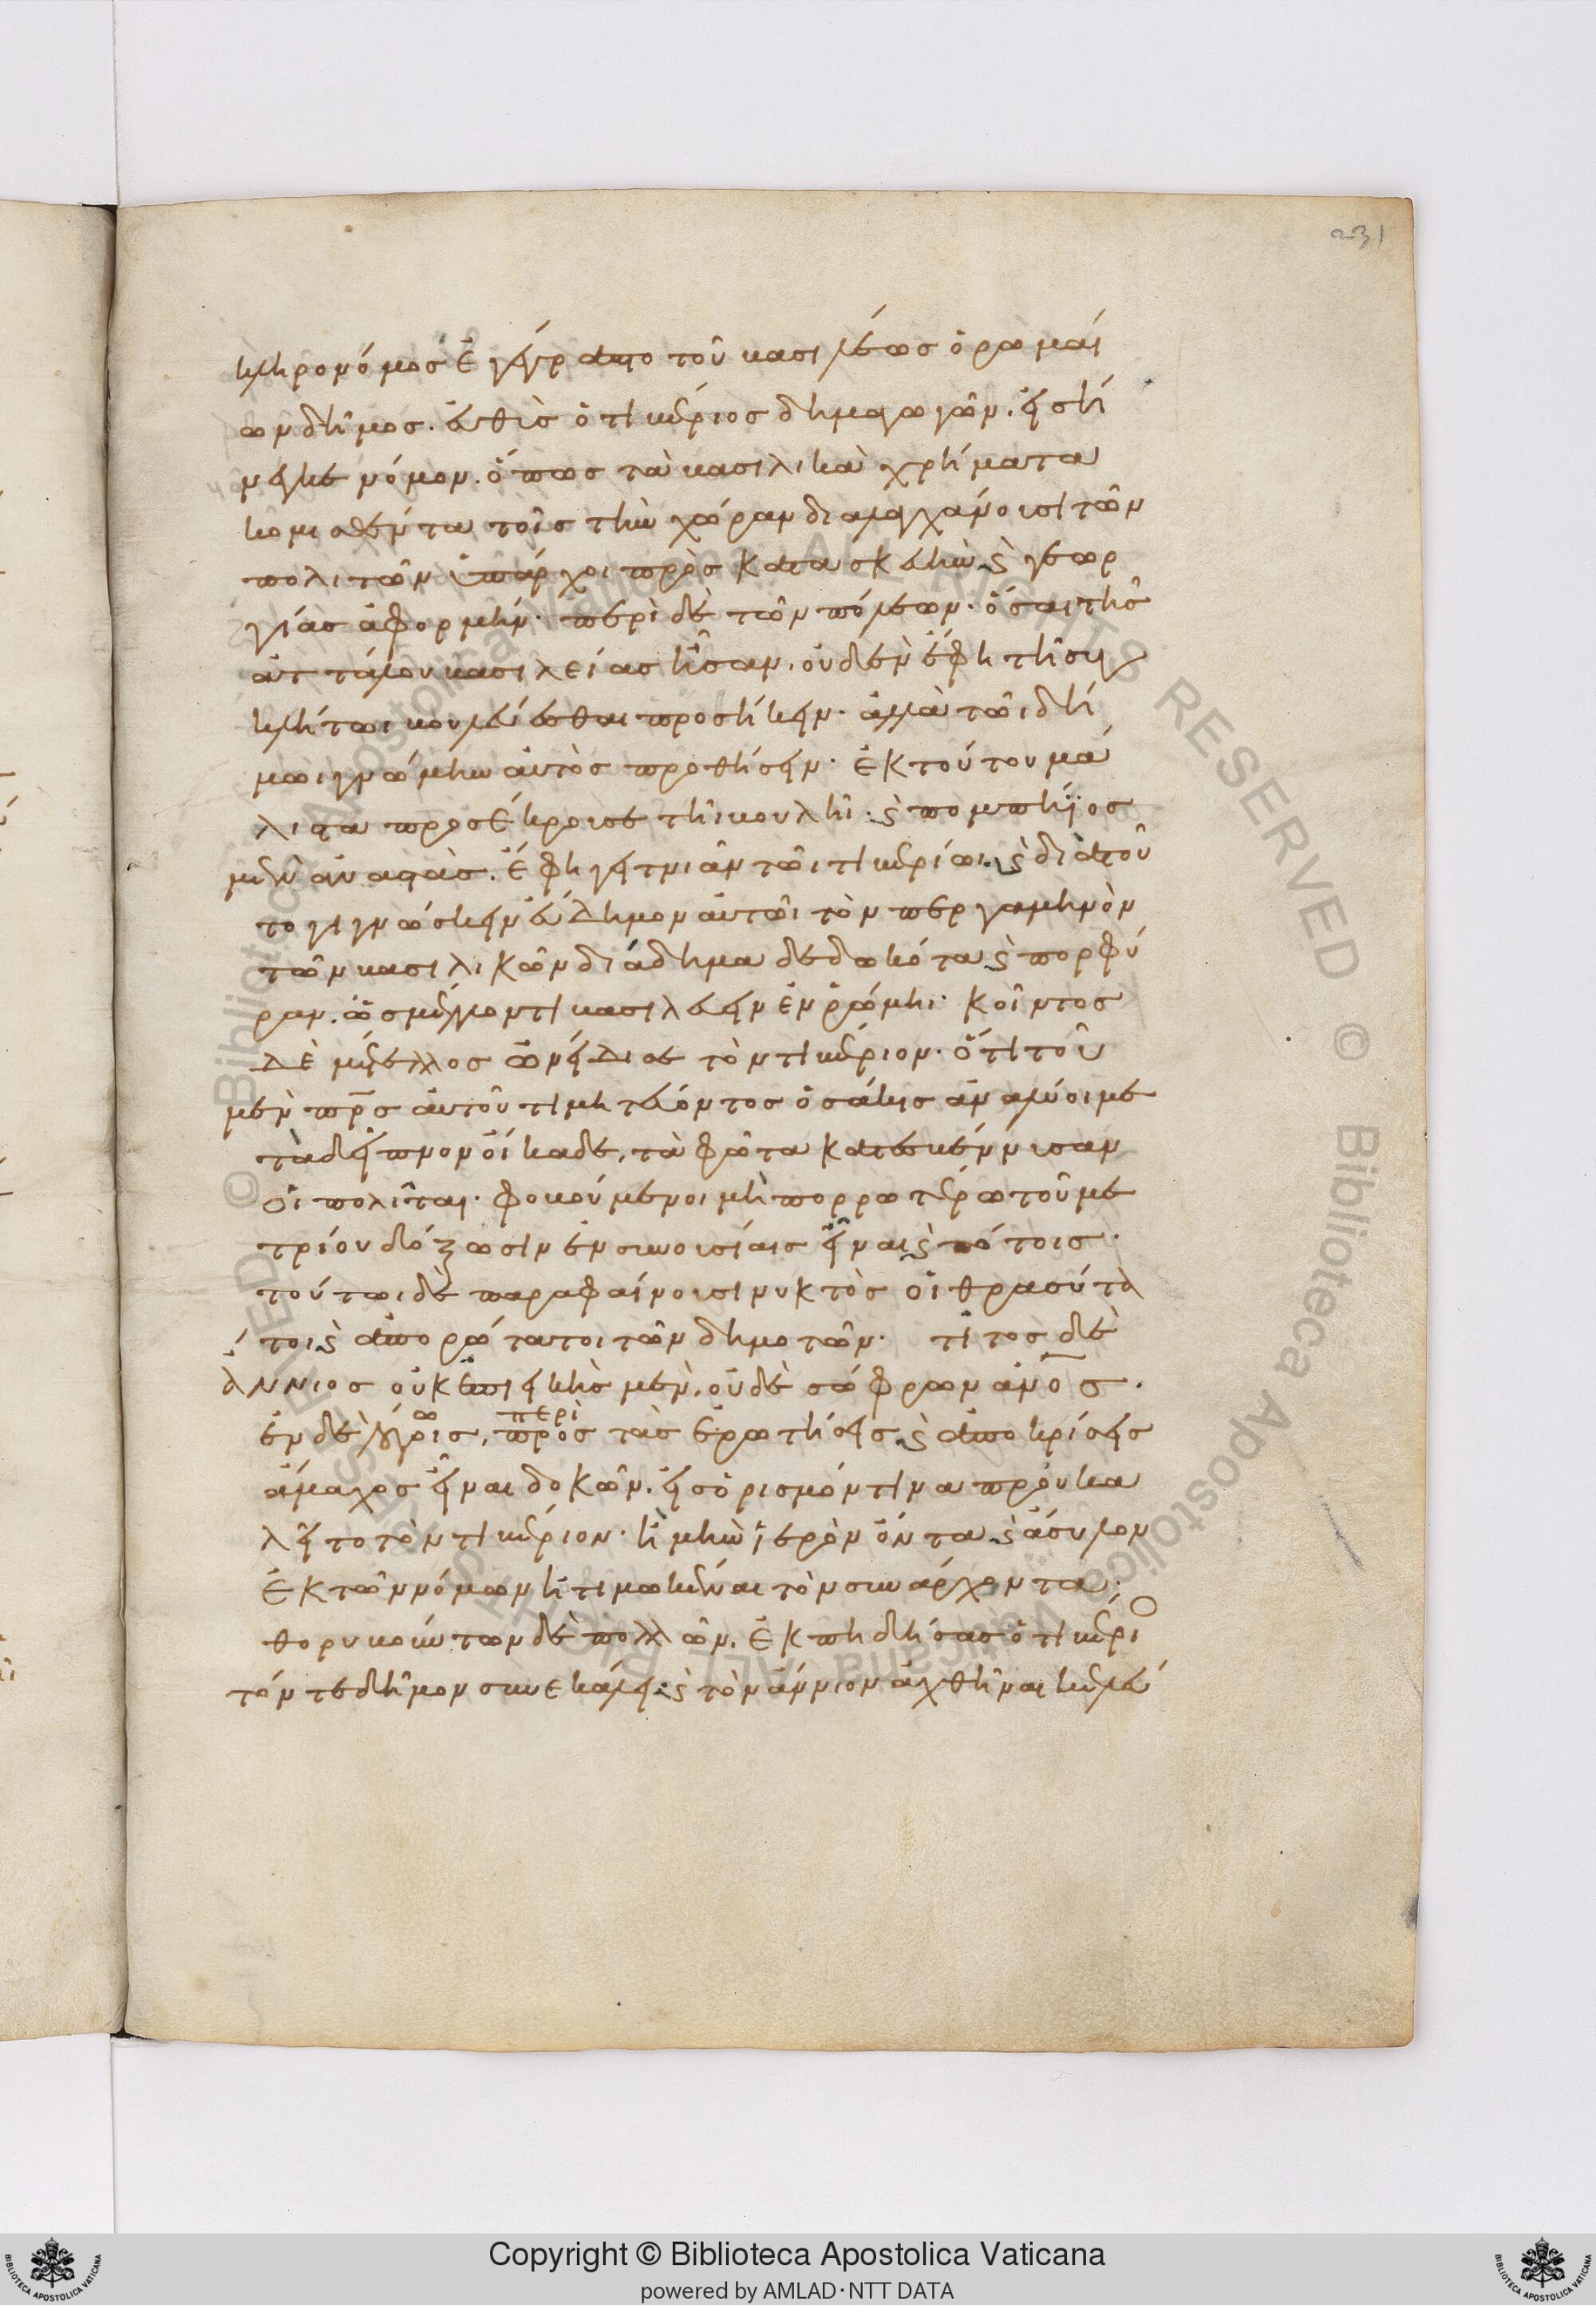 231
κληρονόμος ἐγέγραπτο τοῦ βασιλέως ὁ ῥωμαί
ων δῆμος. εὐθὺς ὁ τιβέριος δημαγωγῶν. εἰσή
νεγκε νόμον. ὅπως τὰ βασιλικὰ χρήματα
κομισθέντα τοῖς τὴν χώραν διαλαγχάνουσι τῶν
πολιτῶν ὑπάρχοι πρὸς κατασκευὴν ϗ γεωρ
γίας ἀφορμήν. περὶ δὲ τῶν πόλεων. ὅσαι τῆς
ἀττάλου βασιλείας ἦσαν. οὐδὲν ἔφη τῆι συγ
κλήτωι βουλεύεσθαι προσήκειν. ἀλλὰ τῶι δή
μωι γνώμην αὐτὸς προθήσειν. ἐκ τούτου μά
λιστα προσέκρουσε τῆι βουλῆι. ϗ πομπήϊος
μὲν ἀναστὰς. ἔφη γειτνιᾶν τῶι τιβερίωι. ϗ διὰ τοῦ
το γιγνώσκειν εὔδημον αὐτῶι τὸν περγαμηνὸν
τῶν βασιλικῶν διάδημα δεδωκότα ϗ πορφύ
ραν. ὡς μέλλοντι βασιλεύειν ἐν ῥώμηι. κοῖντος
δὲ μέτελλος ὠνείδισε τὸν τιβέριον. ὅτι τοῦ
μὲν πρς αὐτοῦ τιμητεύοντος ὁσάκις ἀναλύοι με
τὰ δεῖπνον οἴκαδε, τὰ φῶτα κατεσβέννυσαν
οἱ πολῖται. φοβούμενοι μὴ πορρωτέρω τοῦ με
τρίου δόξωσιν ἐν συνουσίαις εἶναι ϗ πότοις.
τούτωι δὲ παραφαίνουσι νυκτὸς οἱ θρασύτα
τοι ϗ ἀπορώτατοι τῶν δημοτῶν. τίτος δὲ
ἄννιος οὐκ ἐπιεικὴς μὲν, οὐδὲ σώφρων ἄνος.
ἐν δὲ λόγοις, πρὸς τὰς ἐρωτήσεις ϗ ἀποκρίσεις
ω περὶ
ἄμαχος εἶναι δοκῶν. εἰς ὁρισμόν τινα προυκα
λεῖτο τὸν τιβέριον. ἦ μὴν ἱερὸν ὄντα ϗ ἄσυλον
ἐκ τῶν νόμων ἠτιμωκέναι τὸν συνάρχοντα.
θορυβούντων δὲ πολλῶν. ἐκπηδήσας ὁ τιβέριο
τόν τε δῆμον συνεκάλει. ϗ τὸν ἄννιον ἀχθῆναι κελεύ
Copyright © Biblioteca Apostolica Vaticana
powered by AMLAD·NTT DATA